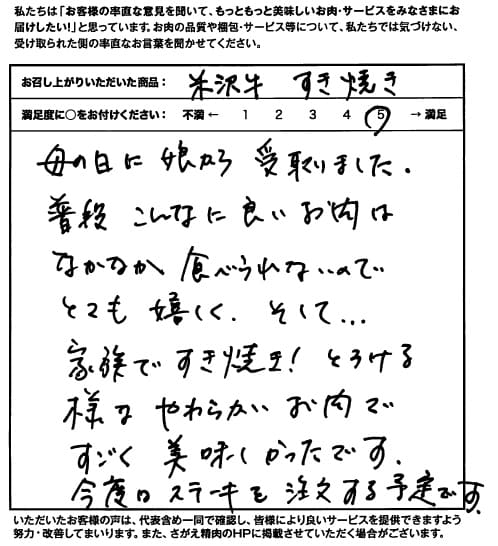 私たちは「お客様の率直な意見を聞いて、もっともっと美味しいお肉・サービスをみなさまにお
届けしたい!」と思っています。お肉の品質や梱包・サービス等について、私たちでは気づけない、
受け取られた側の率直なお言葉を聞かせてください。
お召し上がりいただいた商品： 米沢牛 すき焼き
満足度に○をお付けください： 不満 ← 1 2 3 4 5 → 満足
母の日に娘から受取りました。
普段こんなに良いお肉は
なかなか食べられないので
とても嬉しく、そして...
家族ですき焼き! とろける
様なやわらかいお肉で
すごく美味しかったです。
今度はステーキを注文する予定です。
いただいたお客様の声は、代表含め一同で確認し、皆様により良いサービスを提供できますよう
努力・改善してまいります。また、さがえ精肉のHPに掲載させていただく場合がございます。